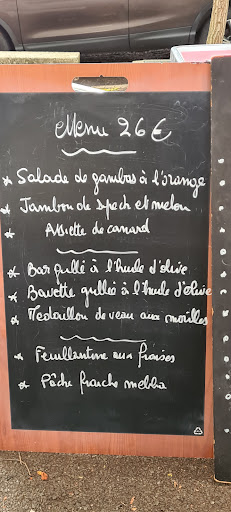 Menu 26€
* Salade de gambas à l'orange
* Jambon de Spech et melon
* Assiette de canard
* Bar grillé à l'huile d'olive
* Bavette grillée à l'huile d'olive
* Medaillon de veau aux morilles
* Feuillantine aux fraises
* Pêche franche melba